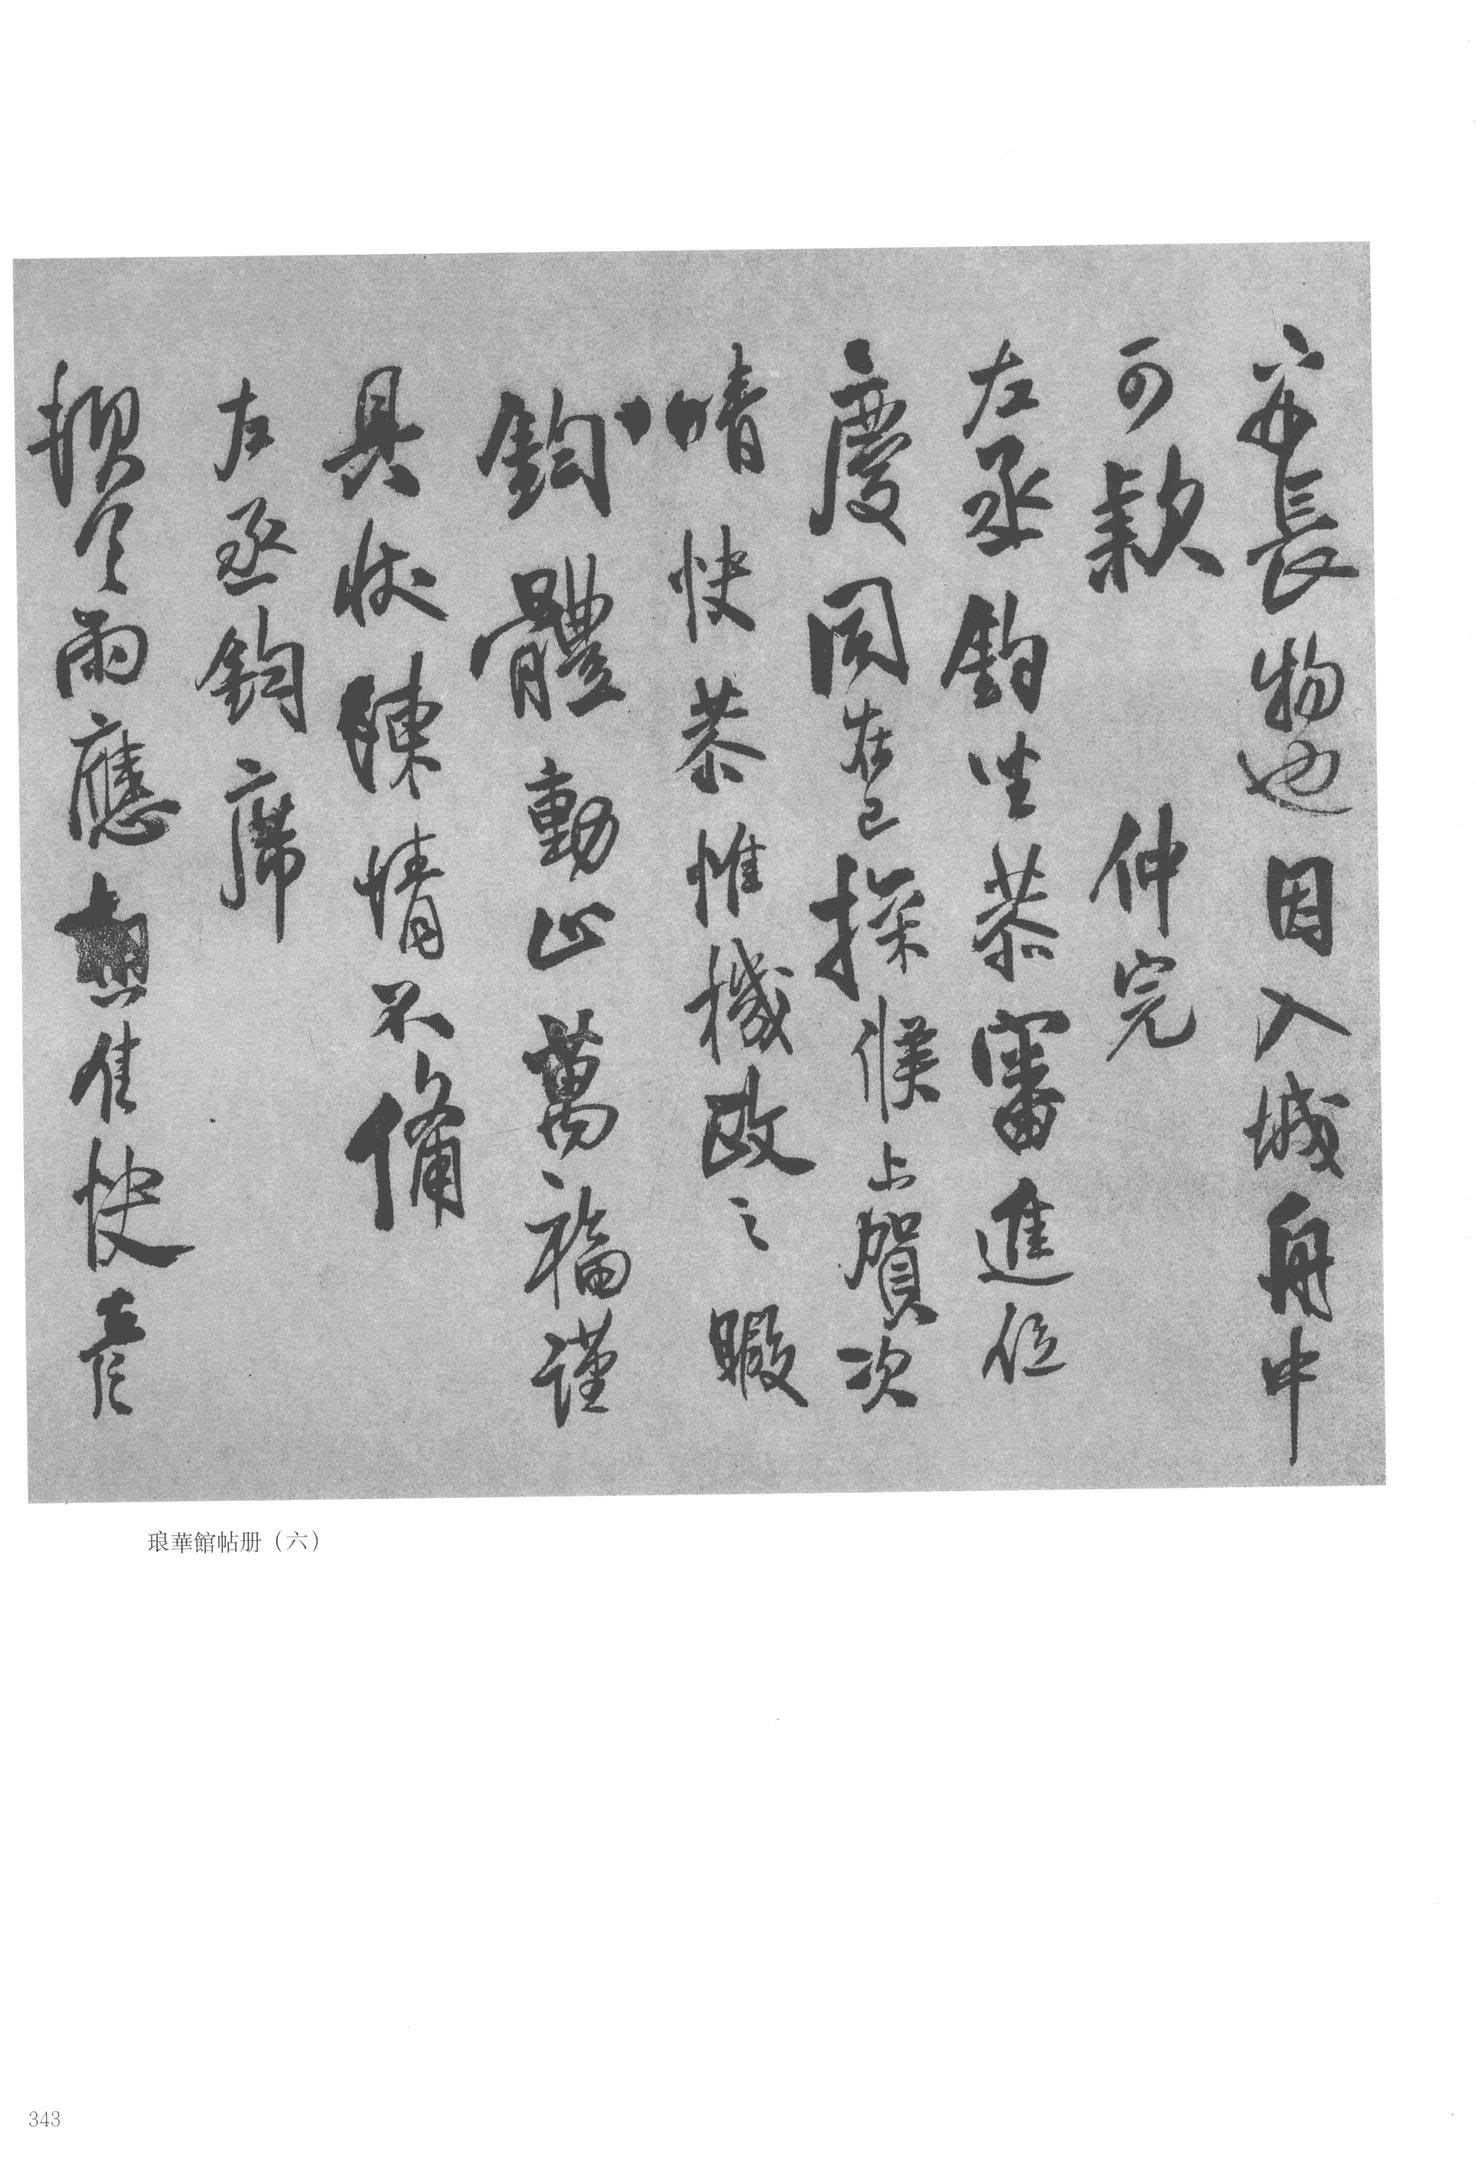 亦長物也因入城舟中
可款　仲完
左丞鈞坐恭審進位
慶同在己探候上賀次
晴快恭惟機政之暇
鈞體動止萬福謹
具狀陳情不備
左丞鈞席
損惠雨應想佳快彥
琅華館帖册（六）
343